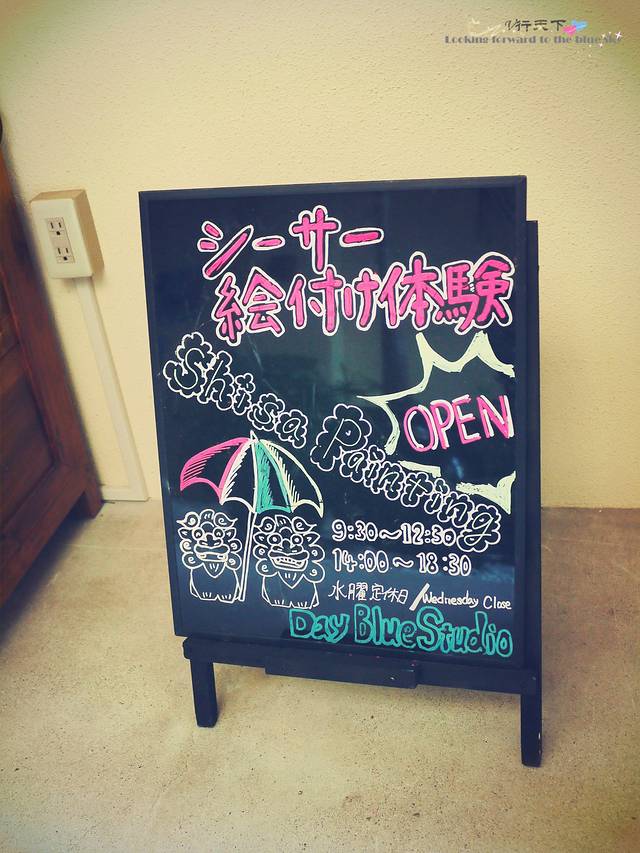 行天下
Looking forward to the bluesky
シーサー
絵付け体験
Shisa Painting
OPEN
9:30～12:30
14:00～18:30
水曜定休日/Wednesday Close
Day Blue Studio